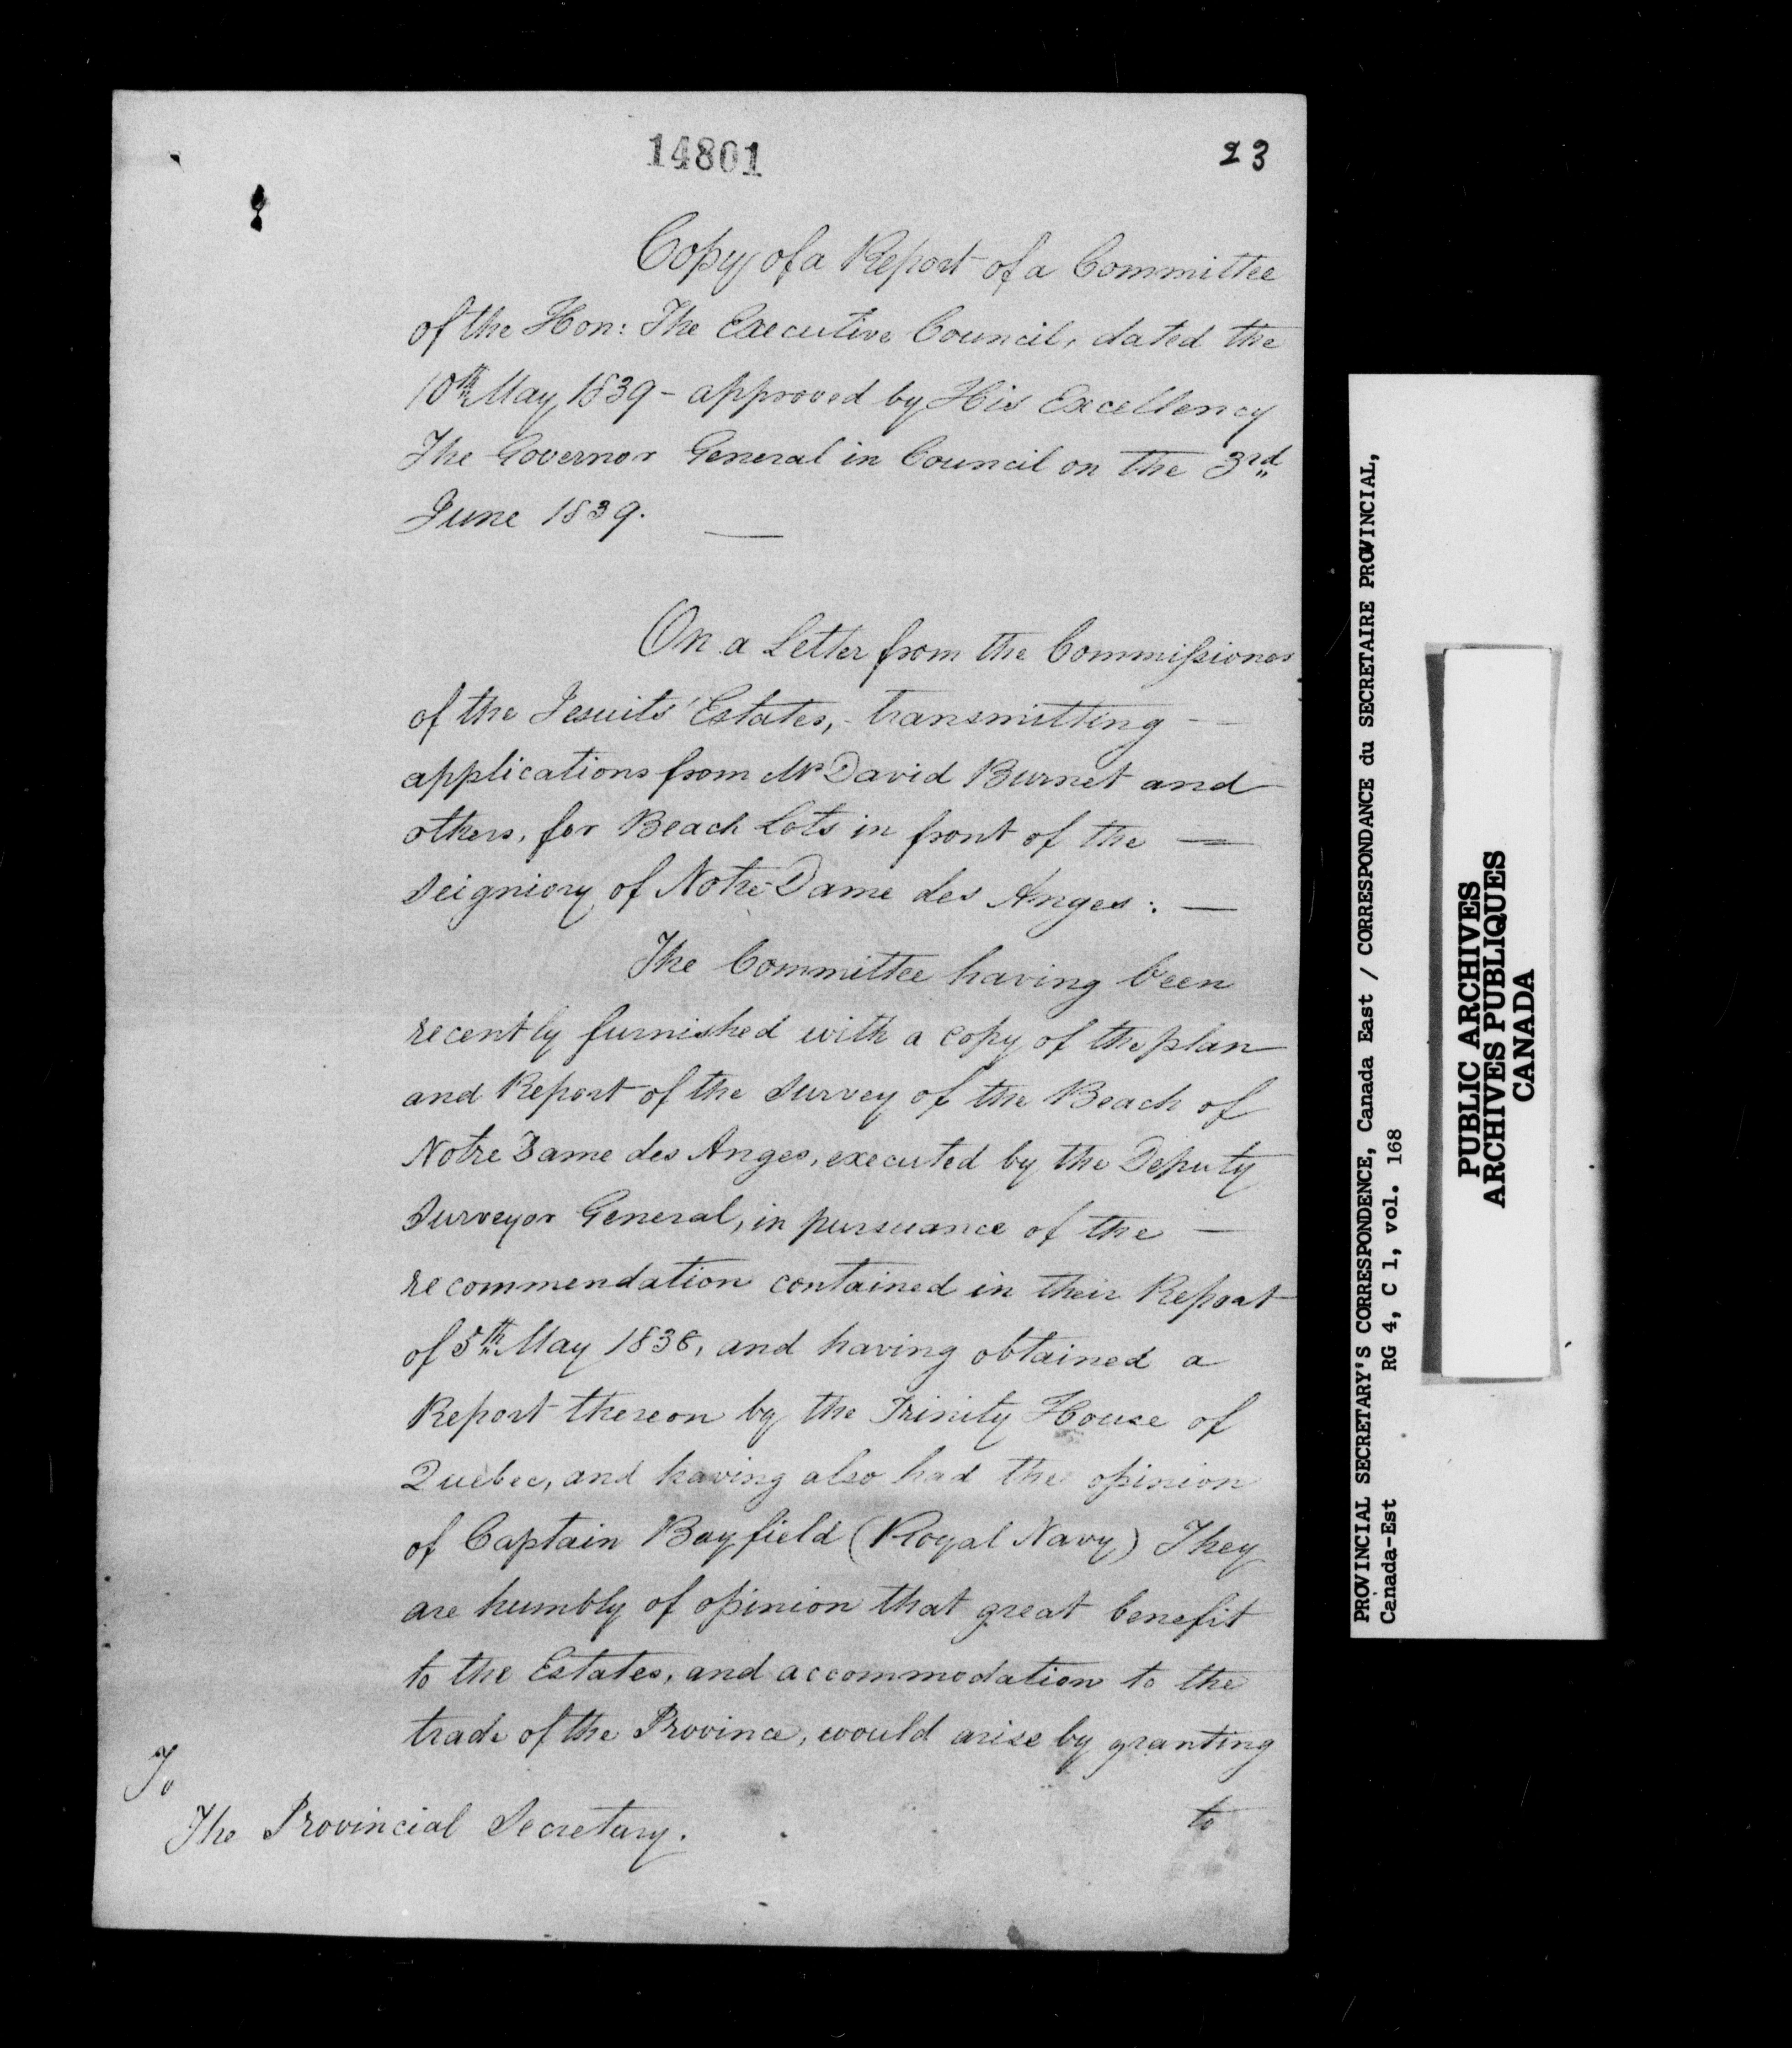 14801
23
Copy of a Report of a Committee
of the Hon: The Executive Council, dated the
10th May, 1839 - approved by His Excellency
The Governor General in Council on the 3rd
June 1839.
On a Letter from the Commissioner
of the Jesuits' Estates, - transmitting -
applications from Mr David Burnet and
others, for Beach Lots in front of the —
Seigniory of Notre-Dame des Anges: —
The Committee having been
recently furnished with a copy of the plan
and Report of the Survey of the Beach of
Notre Dame des Anges, executed by the Deputy
Surveyor General, in pursuance of the —
recommendation contained in their Report
of 5th May 1838, and having obtained a
Report thereon by the Trinity House of
Quebec, and having also had the opinion
of Captain Bayfield (Royal Navy) They
are humbly of opinion that great benefit
to the Estates, and accommodation to the
trade of the Province, would arise by granting
to
To
The Provincial Secretary.
PROVINCIAL SECRETARY'S CORRESPONDENCE, Canada East / CORRESPONDANCE du SECRETAIRE PROVINCIAL,
Canada-Est RG 4, C 1, vol. 168
PUBLIC ARCHIVES
ARCHIVES PUBLIQUES
CANADA